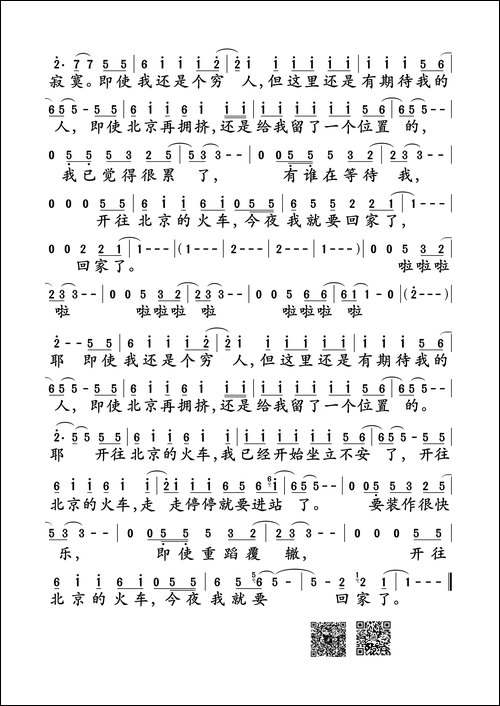 2· 7 7 5 5 | 6 1 1 1 2 | 2 1 1 1 1 | 1 1 1 1 1 1 5 6 |
寂寞。即使我还是个穷 人,但这里还是有期待我的
6 5 5 - 5 5 | 6 1 1 6 1 1 | 1 1 1 1 1 1 5 6 | 6 5 5 - - |
人, 即使北京再拥挤,还是给我留了一个位置 的,
0 5 5 5 3 2 5 | 5 3 3 - - | 0 0 5 5 5 3 2 | 2 3 3 - - |
我已觉得很累 了, 有谁在等待 我,
0 0 0 5 5 | 6 1 1 6 1 0 5 5 | 6 5 5 2 2 1 | 1 - - - |
开往 北京的火车,今夜我就要回家了,
0 0 2 2 1 | 1 - - - | (1 - - - | 2 - - - | 2 - - - | 1 - - -) | 0 0 5 3 2 |
回家了。 啦啦啦
2 3 3 - - | 0 0 5 3 2 | 2 3 3 - - | 0 0 5 6 6 | 6 1 1 - 0 | (2 - - - |
啦 啦啦啦 啦 啦啦啦 啦
2 - - 5 5 | 6 1 1 1 2 | 2 1 1 1 1 | 1 1 1 1 1 1 5 6 |
耶 即使我还是个穷 人,但这里还是有期待我的
6 5 5 - 5 5 | 6 1 1 6 1 1 | 1 1 1 1 1 1 5 6 | 6 5 5 - - |
人, 即使北京再拥挤,还是给我留了一个位置 的。
2· 5 5 5 5 | 6 1 1 6 1 1 | 1 1 1 1 1 1 5 6 | 6 5 5 - 5 5 |
耶 开往北京的火车,我已经开始坐立不安 了,开往
北京的火车,走 走停停就要进站 了。 要装作很快
5 3 3 - - | 0 0 5 5 5 3 2 | 2 3 3 - - | 0 0 0 5 5 |
乐, 即使重蹈覆 辙, 开往
北京的火车,今夜我就要 回家了。